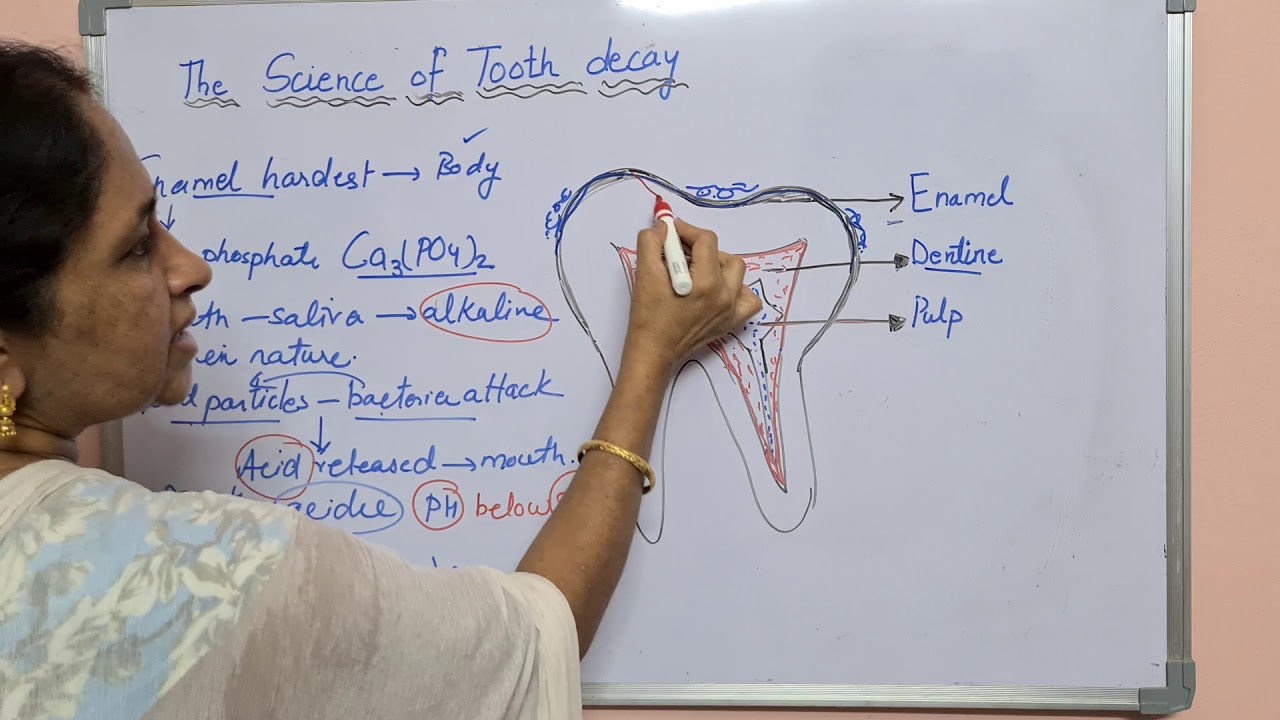 The Science of Tooth decay
Enamel hardest → Body
phosphate Ca3(PO4)2
saliva → alkaline
in nature.
particles – bacteria attack
Acid released → mouth.
PH below
Enamel
Dentine
Pulp